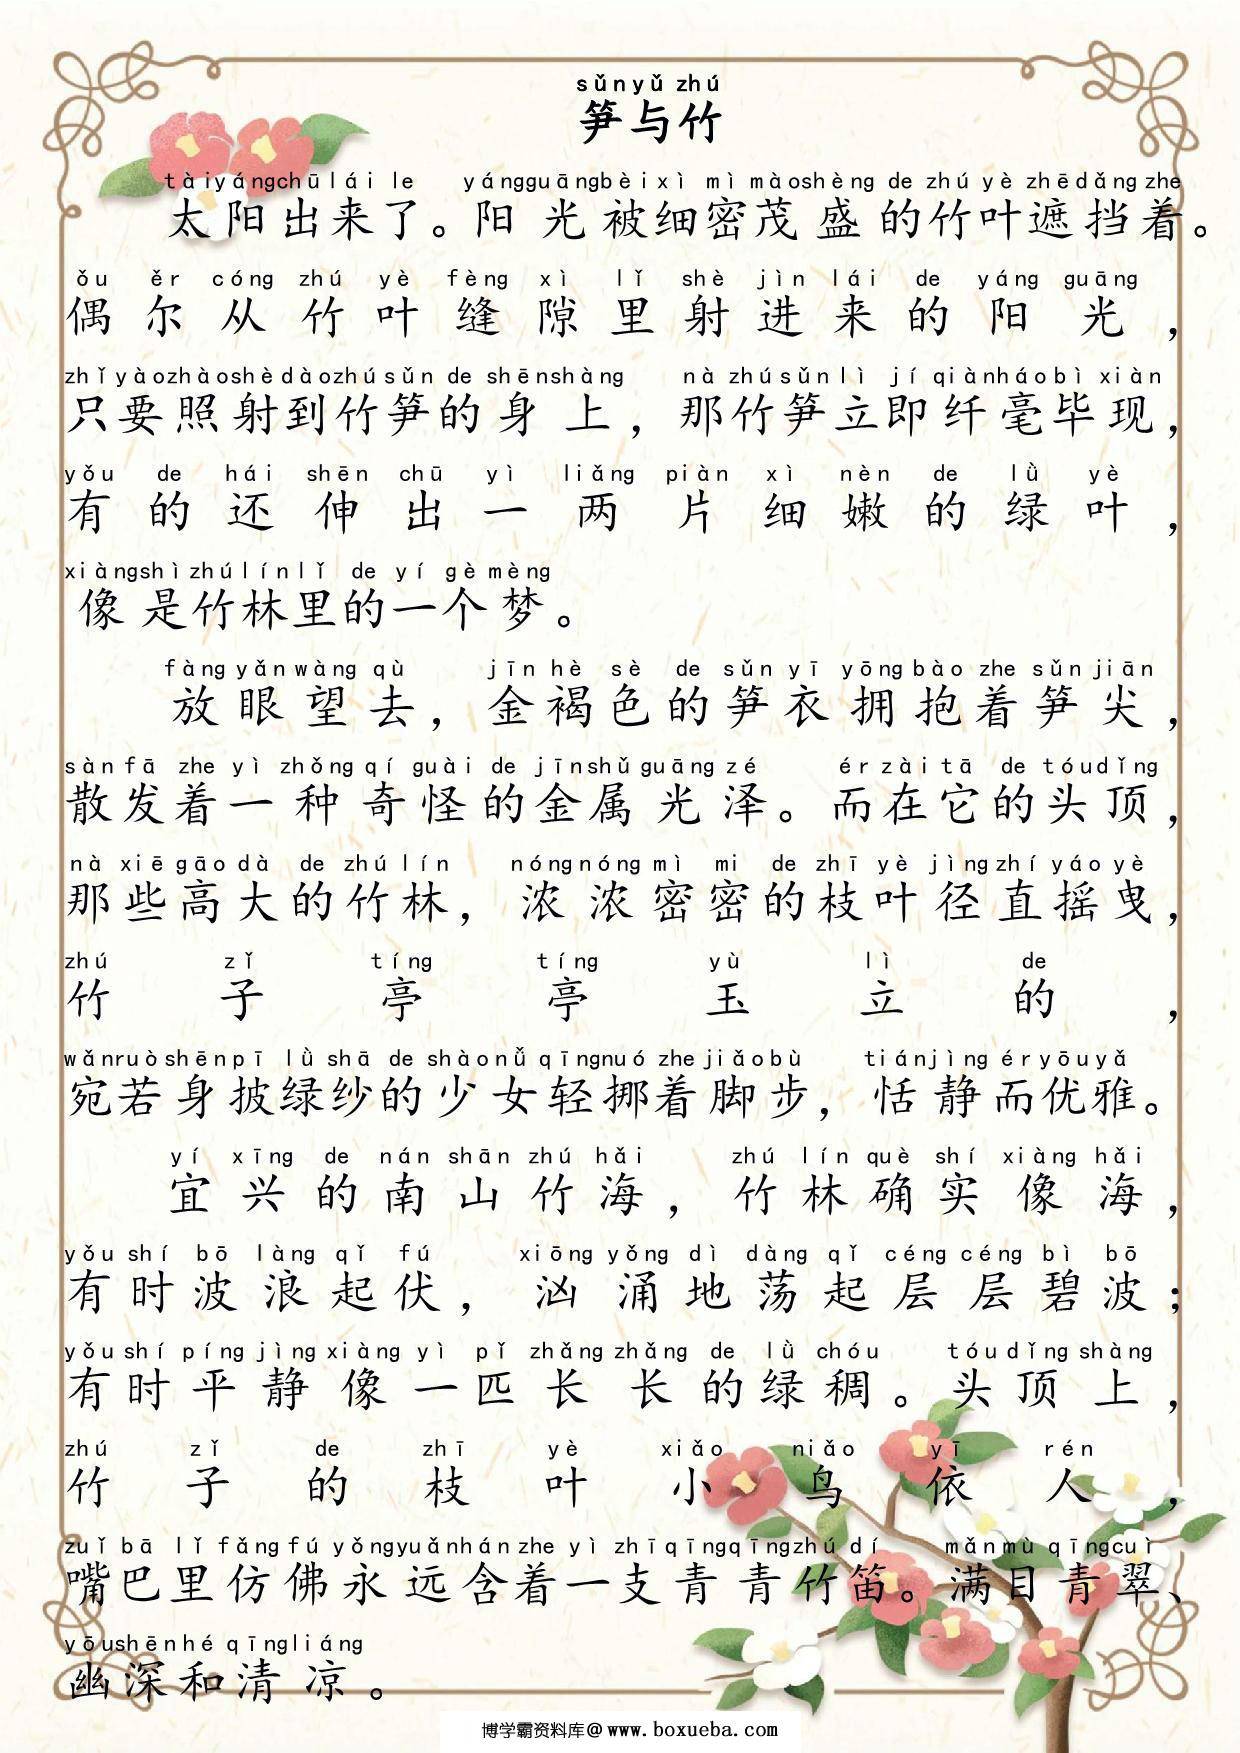 sǔnyǔ zhú
笋与竹
tàiyángchūlái le yángguāngbèixì mì màoshèng de zhú yè zhēdǎng zhe
太阳出来了。阳光被细密茂盛的竹叶遮挡着。
ǒu ěr cóng zhú yè fèng xì lǐ shè jìn lái de yáng guāng
偶尔从竹叶缝隙里射进来的阳光，
zhǐyàozhàoshèdàozhúsǔn de shēnshàng nà zhúsǔnlì jí qiànháobì xiàn
只要照射到竹笋的身上，那竹笋立即纤毫毕现，
yǒu de hái shēn chū yì liǎng piàn xì nèn de lǜ yè
有的还伸出一两片细嫩的绿叶，
xiàngshìzhúlínlǐ de yí gè mèng
像是竹林里的一个梦。
fàng yǎn wàng qù jīn hè sè de sǔn yī yōng bào zhe sǔn jiān
放眼望去，金褐色的笋衣拥抱着笋尖，
sàn fā zhe yì zhǒng qí guài de jīnshǔ guāng zé ér zài tā de tóudǐng
散发着一种奇怪的金属光泽。而在它的头顶，
nà xiē gāo dà de zhú lín nóng nóng mì mi de zhī yè jìng zhí yáo yè
那些高大的竹林，浓浓密密的枝叶径直摇曳，
zhú zǐ tíng tíng yù lì de
竹子亭亭玉立的，
wǎnruòshēnpī lǜ shā de shàonǚ qīngnuó zhe jiǎobù tiánjìng éryōuyǎ
宛若身披绿纱的少女轻挪着脚步，恬静而优雅。
yí xīng de nán shān zhú hǎi zhú lín què shí xiàng hǎi
宜兴的南山竹海，竹林确实像海，
yǒu shí bō làng qǐ fú xiōng yǒng dì dàng qǐ céng céng bì bō
有时波浪起伏，汹涌地荡起层层碧波；
yǒu shí píng jìng xiàng yì pǐ zhǎng zhǎng de lǜ chóu tóu dǐng shàng
有时平静像一匹长长的绿稠。头顶上，
zhú zǐ de zhī yè xiǎo niǎo yī rén
竹子的枝叶小鸟依人，
zuǐ bā lǐ fǎng fú yǒngyuǎnhán zhe yì zhīqīngqīngzhú dí mǎnmù qīngcuì
嘴巴里仿佛永远含着一支青青竹笛。满目青翠、
yōushēnhé qīngliáng
幽深和清凉。
博学霸资料库@www.boxueba.com